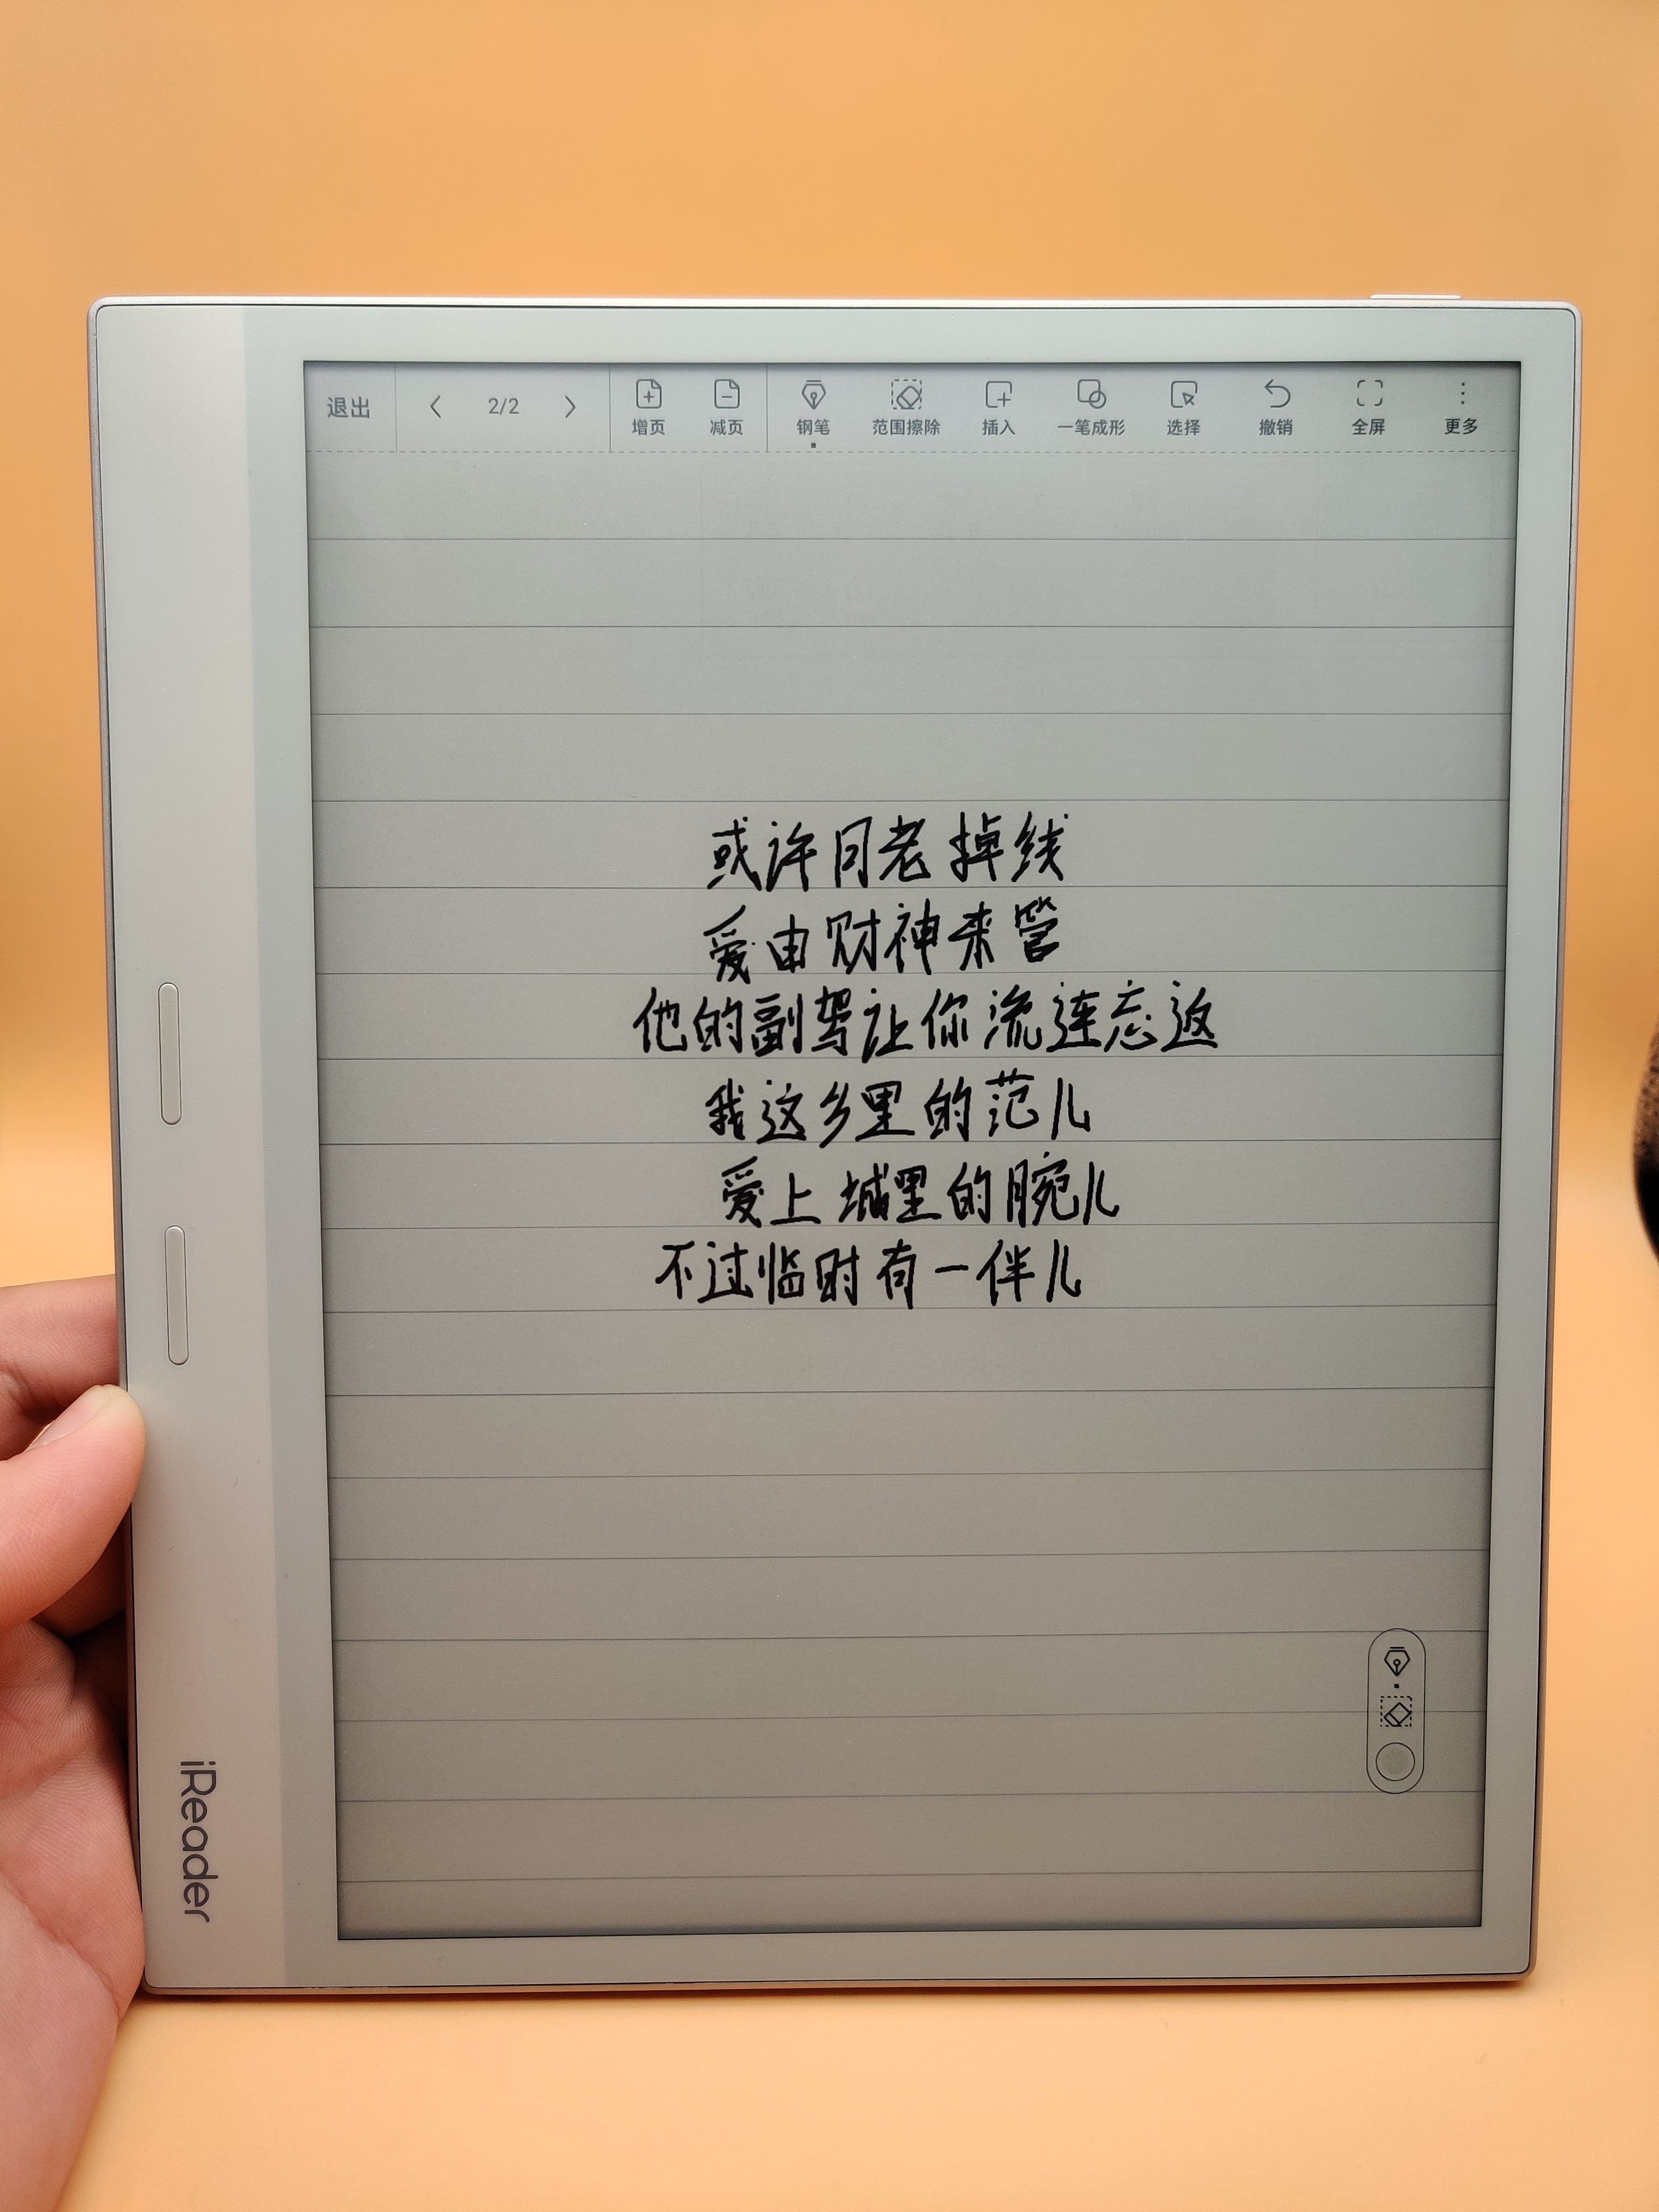 退出 2/2 增页 减页 钢笔 范围擦除 插入 一笔成形 选择 撤销 全屏 更多
或许月老掉线
爱由财神来管
他的副驾让你流连忘返
我这乡里的范儿
爱上城里的腕儿
不过临时有一伴儿
iReader